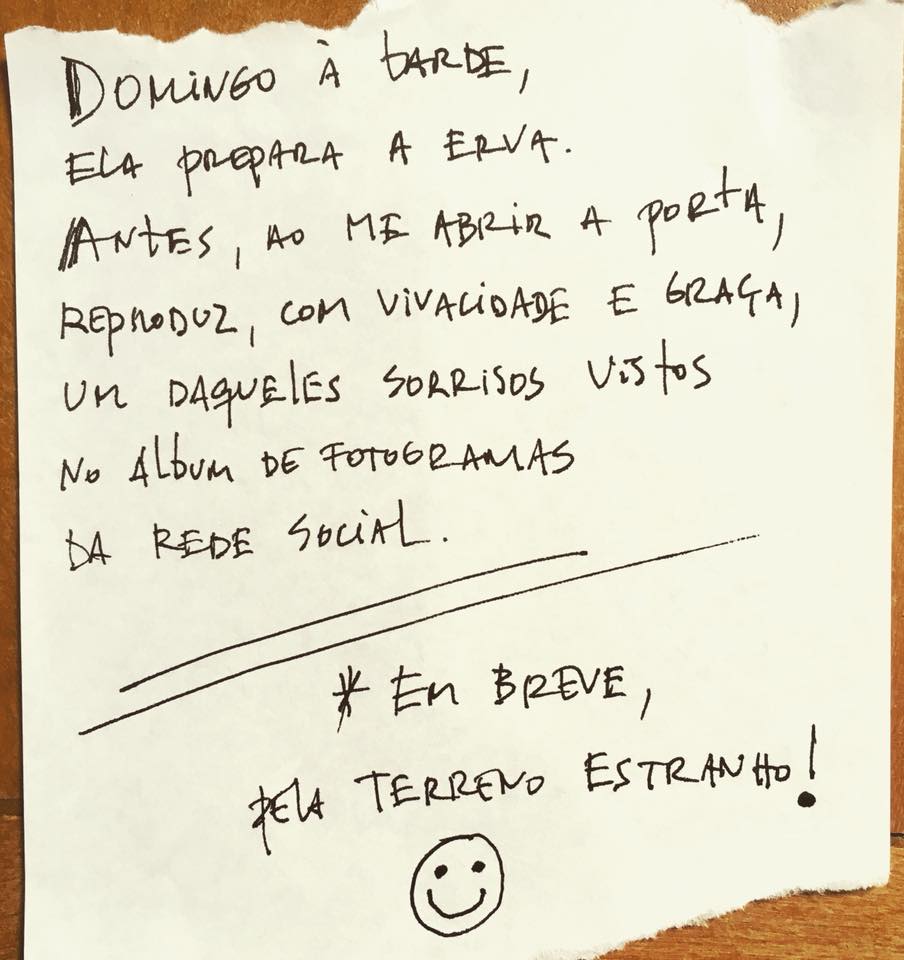 DOMINGO À TARDE,
ELA PREPARA A ERVA.
ANTES, AO ME ABRIR A PORTA,
REPRODUZ, COM VIVACIDADE E GRAÇA,
UM DAQUELES SORRISOS VISTOS
NO ÁLBUM DE FOTOGRAMAS
DA REDE SOCIAL.
* EM BREVE,
PELA TERRENO ESTRANHO!